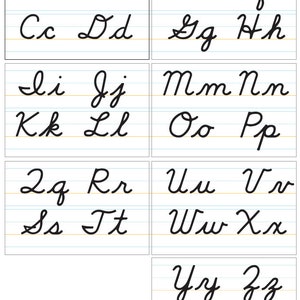 Cc Dd
Gg Hh
Ii Jj
Kk Ll
Mm Nn
Oo Pp
Qq Rr
Ss Tt
Uu Vv
Ww Xx
Yy Zz